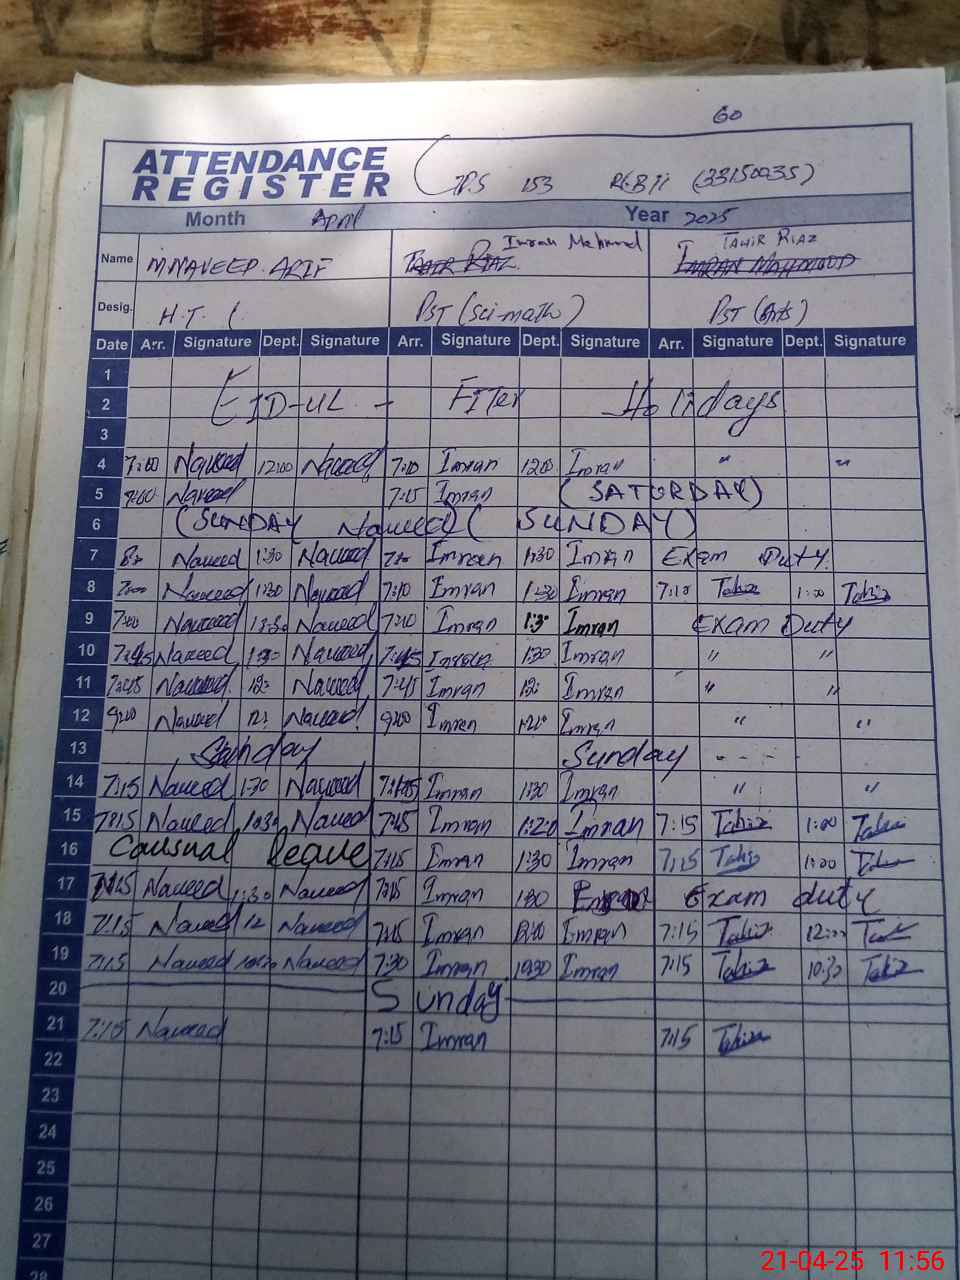 60
ATTENDANCE
REGISTER
153 (33150035)
Month April Year 2025
Name M NAVEED ARIF Imran Mehmood TAHIR RIAZ
TAHIR RIAZ IMRAN MAHMOOD
Desig. H.T ( PST (Sci-math) PST (Arts)
Date Arr. Signature Dept. Signature Arr. Signature Dept. Signature Arr. Signature Dept. Signature
1
2 EID-UL - FITer Holidays
3
4 7:00 Naveed 12:00 Naveed 7:10 Imran 1200 Imran " "
5 Naveed 7:15 Imran (SATURDAY)
6 (SUNDAY Naveed) ( SUNDAY)
7 Naveed 1:30 Naveed Imran 1:30 Imran Exam Duty
8 Naveed 1:30 Naveed 7:10 Imran 1:30 Imran 7:10 Tahir 1:00 Tahir
9 Naveed Naveed Imran 1:30 Imran Exam Duty
10 7:45 Naveed 1:30 Naveed 7:45 Imran 1:30 Imran " "
11 7:45 Naveed 12: Naveed 7:45 Imran 12: Imran " "
12 9:00 Naveed 12: Naveed 9:00 Imran Imran " "
13 Sunday Sunday - - - -
14 7:15 Naveed 1:30 Naveed Imran 1:30 Imran " "
15 7:15 Naveed Naveed 7:45 Imran 1:20 Imran 7:15 Tahir 1:00 Tahir
16 Causual leave 7:15 Imran 1:30 Imran 7:15 Tahir 1:00 Tahir
17 7:15 Naveed 1:30 Naveed 7:15 Imran 1:30 Exam duty
18 7:15 Naveed 12 Naveed 7:15 Imran Imran 7:15 Tahir 12:00 Tahir
19 7:15 Naveed 10:30 Naveed 7:30 Imran 10:30 Imran 7:15 Tahir 10:30 Tahir
20 Sunday
21 7:15 Naveed 7:15 Imran 7:15 Tahir
22
23
24
25
26
27
28
21-04-25 11:56